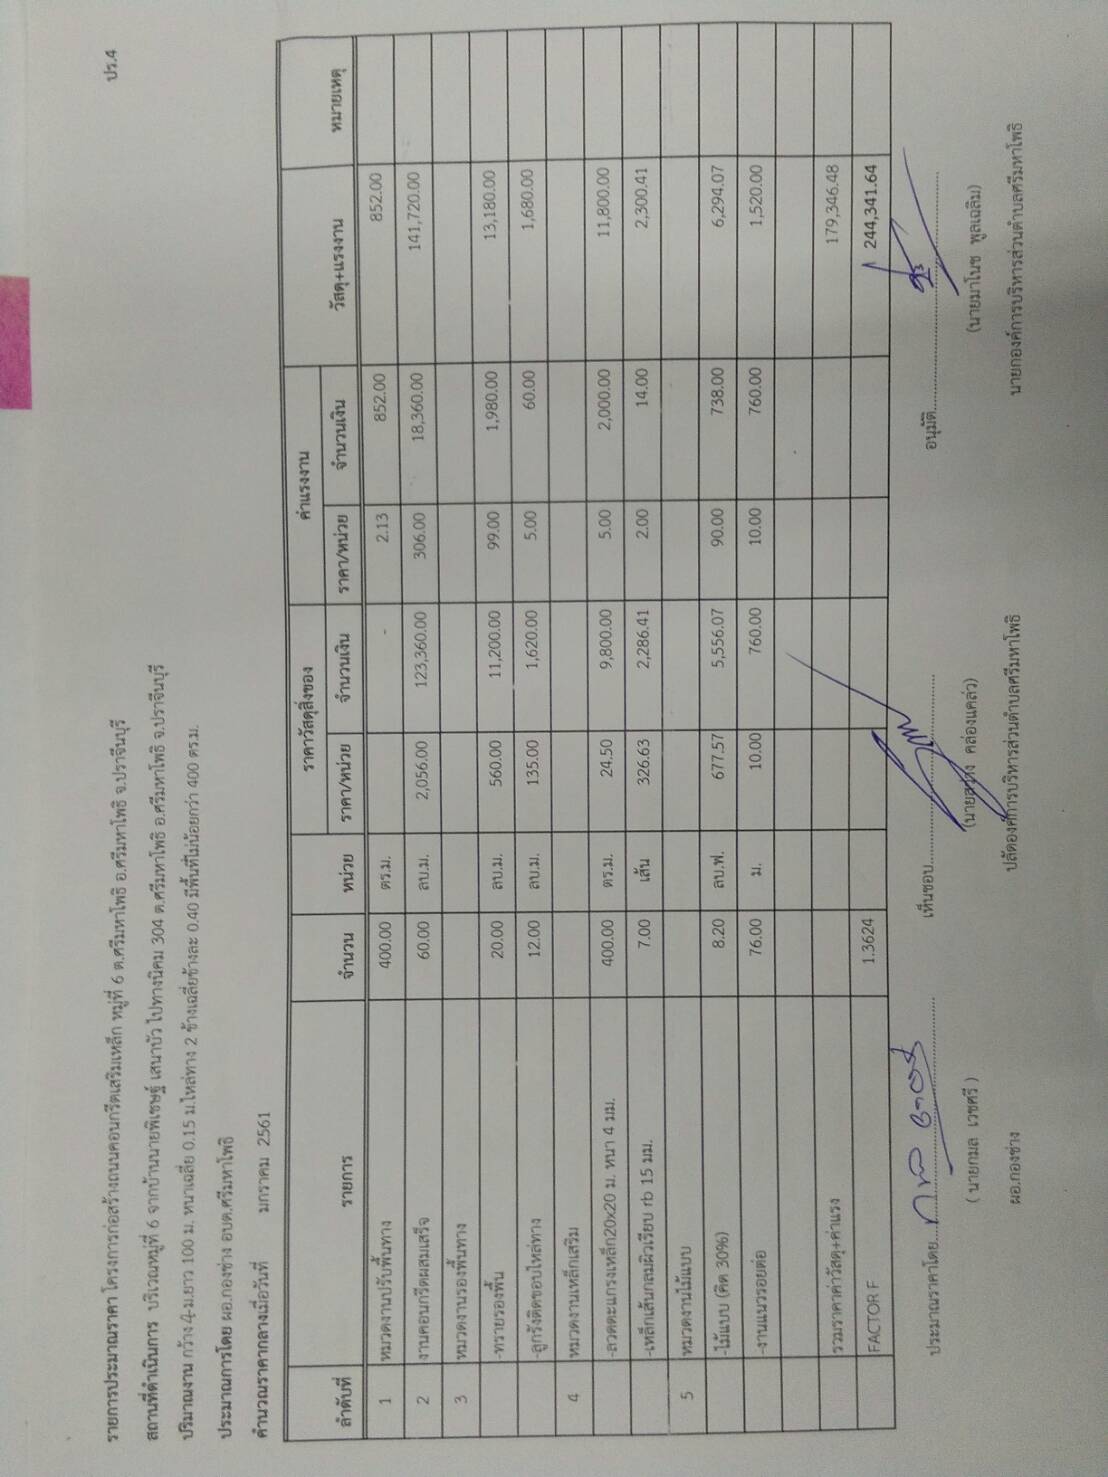 ปร.4
รายการประมาณราคา โครงการก่อสร้างถนนคอนกรีตเสริมเหล็ก หมู่ที่ 6 ต.ศรีมหาโพธิ อ.ศรีมหาโพธิ จ.ปราจีนบุรี
สถานที่ดำเนินการ บริเวณหมู่ที่ 6 จากบ้านนายพิเชษฐ์ เสนาบัว ไปทางนิคม 304 ต.ศรีมหาโพธิ อ.ศรีมหาโพธิ จ.ปราจีนบุรี
ปริมาณงาน กว้าง 4 ม.ยาว 100 ม. หนาเฉลี่ย 0.15 ม.ไหล่ทาง 2 ข้างเฉลี่ยข้างละ 0.40 มีพื้นที่ไม่น้อยกว่า 400 ตร.ม.
ประมาณการโดย ผอ.กองช่าง อบต.ศรีมหาโพธิ
คำนวณราคากลางเมื่อวันที่ มกราคม 2561
ลำดับที่ รายการ จำนวน หน่วย ราคาวัสดุสิ่งของ ค่าแรงงาน วัสดุ+แรงงาน หมายเหตุ
ราคา/หน่วย จำนวนเงิน ราคา/หน่วย จำนวนเงิน
1 หมวดงานปรับพื้นทาง 400.00 ตร.ม. - 2.13 852.00 852.00
2 งานคอนกรีตผสมเสร็จ 60.00 ลบ.ม. 2,056.00 123,360.00 306.00 18,360.00 141,720.00
3 หมวดงานรองพื้นทาง
-ทรายรองพื้น 20.00 ลบ.ม. 560.00 11,200.00 99.00 1,980.00 13,180.00
-ลูกรังติดขอบไหล่ทาง 12.00 ลบ.ม. 135.00 1,620.00 5.00 60.00 1,680.00
4 หมวดงานเหล็กเสริม
-ลวดตะแกรงเหล็ก20x20 ม. หนา 4 มม. 400.00 ตร.ม. 24.50 9,800.00 5.00 2,000.00 11,800.00
-เหล็กเส้นกลมผิวเรียบ rb 15 มม. 7.00 เส้น 326.63 2,286.41 2.00 14.00 2,300.41
5 หมวดงานไม้แบบ
-ไม้แบบ (คิด 30%) 8.20 ลบ.ฟ. 677.57 5,556.07 90.00 738.00 6,294.07
-งานแนวรอยต่อ 76.00 ม. 10.00 760.00 10.00 760.00 1,520.00
รวมราคาค่าวัสดุ+ค่าแรง 179,346.48
FACTOR F 1.3624 244,341.64
ประมาณราคาโดย เห็นชอบ อนุมัติ
( นายกมล เวชศรี ) คล่องแคล่ว) (นายมาโนช พูลเฉลิม)
ผอ.กองช่าง ปลัดองค์การบริหารส่วนตำบลศรีมหาโพธิ นายกองค์การบริหารส่วนตำบลศรีมหาโพธิ